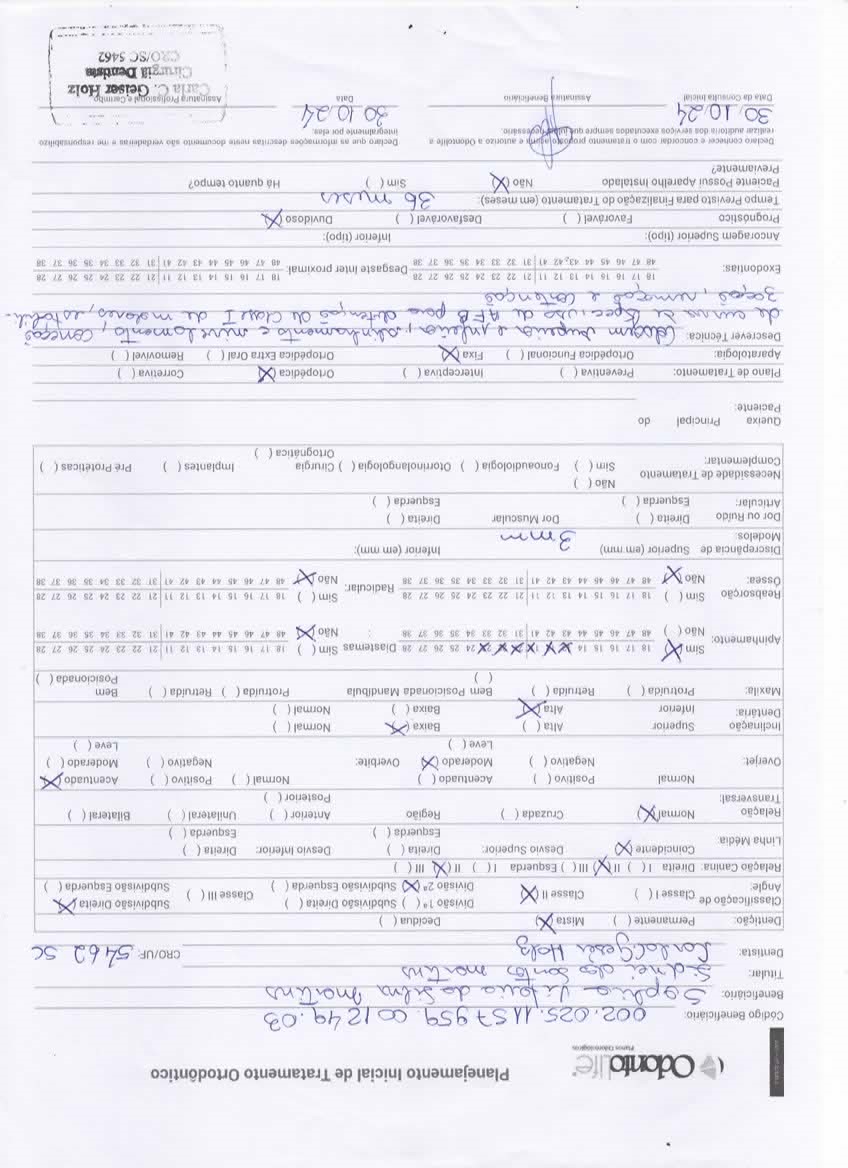 OdontoLife
Planos Odontológicos
Planejamento Inicial de Tratamento Ortodôntico
Código Beneficiário: 002.025.1157959.001249.03
Beneficiário: Sophia Vitória da Silva Martins
Titular: Sidnei dos Santos martins
Dentista: Carla C. Geiser Holz CRO/UF: 5462 SC
Dentição: Permanente ( ) Mista (X) Decídua ( )
Classificação de Angle: Classe I ( ) Classe II (X) Divisão 1ª ( ) Subdivisão Direita ( ) Classe III ( ) Subdivisão Direita (X)
Divisão 2ª (X) Subdivisão Esquerda ( ) Subdivisão Esquerda ( )
Relação Canina: Direita I ( ) II (X) III ( ) Esquerda I ( ) II (X) III ( )
Linha Média: Coincidente (X) Desvio Superior: Direita ( ) Desvio Inferior: Direita ( )
Esquerda ( ) Esquerda ( )
Relação Transversal: Normal (X) Cruzada ( ) Região Anterior ( ) Unilateral ( ) Bilateral ( )
Posterior ( )
Overjet: Normal Positivo ( ) Acentuado ( ) Normal ( ) Positivo ( ) Acentuado (X)
Negativo ( ) Moderado (X) Overbite: Negativo ( ) Moderado ( )
Leve ( ) Leve ( )
Inclinação Dentária: Superior Alta ( ) Baixa (X) Normal ( )
Inferior Alta (X) Baixa ( ) Normal ( )
Maxila: Protruída ( ) Retruída ( ) Bem Posicionada ( ) Mandíbula Protruída ( ) Retruída ( ) Bem Posicionada ( )
Apinhamento: Sim (X) 18 17 16 15 14 X X 1 X X X X 24 25 26 27 28 Diastemas: Sim ( ) 18 17 16 15 14 13 12 11 21 22 23 24 25 26 27 28
Não ( ) 48 47 46 45 44 43 42 41 31 32 33 34 35 36 37 38 Não (X) 48 47 46 45 44 43 42 41 31 32 33 34 35 36 37 38
Reabsorção Óssea: Sim ( ) 18 17 16 15 14 13 12 11 21 22 23 24 25 26 27 28 Radicular: Sim ( ) 18 17 16 15 14 13 12 11 21 22 23 24 25 26 27 28
Não (X) 48 47 46 45 44 43 42 41 31 32 33 34 35 36 37 38 Não (X) 48 47 46 45 44 43 42 41 31 32 33 34 35 36 37 38
Discrepância de Modelos: Superior (em mm) 3mm Inferior (em mm):
Dor ou Ruído Articular: Direita ( ) Dor Muscular Direita ( )
Esquerda ( ) Esquerda ( )
Necessidade de Tratamento Complementar: Não ( )
Sim ( ) Fonoaudiologia ( ) Otorrinolangologia ( ) Cirurgia Ortognática ( ) Implantes ( ) Pré Protéticas ( )
Queixa Principal do Paciente:
Plano de Tratamento: Preventiva ( ) Interceptiva ( ) Ortopédica (X) Corretiva ( )
Aparatologia: Ortopédica Funcional ( ) Fixa (X) Ortopédica Extra Oral ( ) Removível ( )
Descrever Técnica: Colagem superior e inferior, alinhamento e nivelamento, correção
de curva de Spee, uso de AEB para obtenção de classe I de molares, estabili-
zação, remoção e contenção
Exodontias: 18 17 16 15 14 13 12 11 21 22 23 24 25 26 27 28 Desgaste Inter proximal: 18 17 16 15 14 13 12 11 21 22 23 24 25 26 27 28
48 47 46 45 44 43 42 41 31 32 33 34 35 36 37 38 48 47 46 45 44 43 42 41 31 32 33 34 35 36 37 38
Ancoragem Superior (tipo): Inferior (tipo):
Prognóstico Favorável ( ) Desfavorável ( ) Duvidoso (X)
Tempo Previsto para Finalização do Tratamento (em meses): 36 meses
Paciente Possui Aparelho Instalado Previamente? Não (X) Sim ( ) Há quanto tempo?
Declaro conhecer e concordar com o tratamento proposto, e autorizo a Odontolife a realizar auditoria dos serviços executados sempre que julgar necessário.
Declaro que as informações descritas neste documento são verdadeiras e me responsabilizo integralmente por elas.
30.10.24 30.10.24
Data da Consulta Inicial Assinatura Beneficiário Data Assinatura Profissional e Carimbo
Carla C. Geiser Holz
Cirurgiã Dentista
CRO/SC 5462